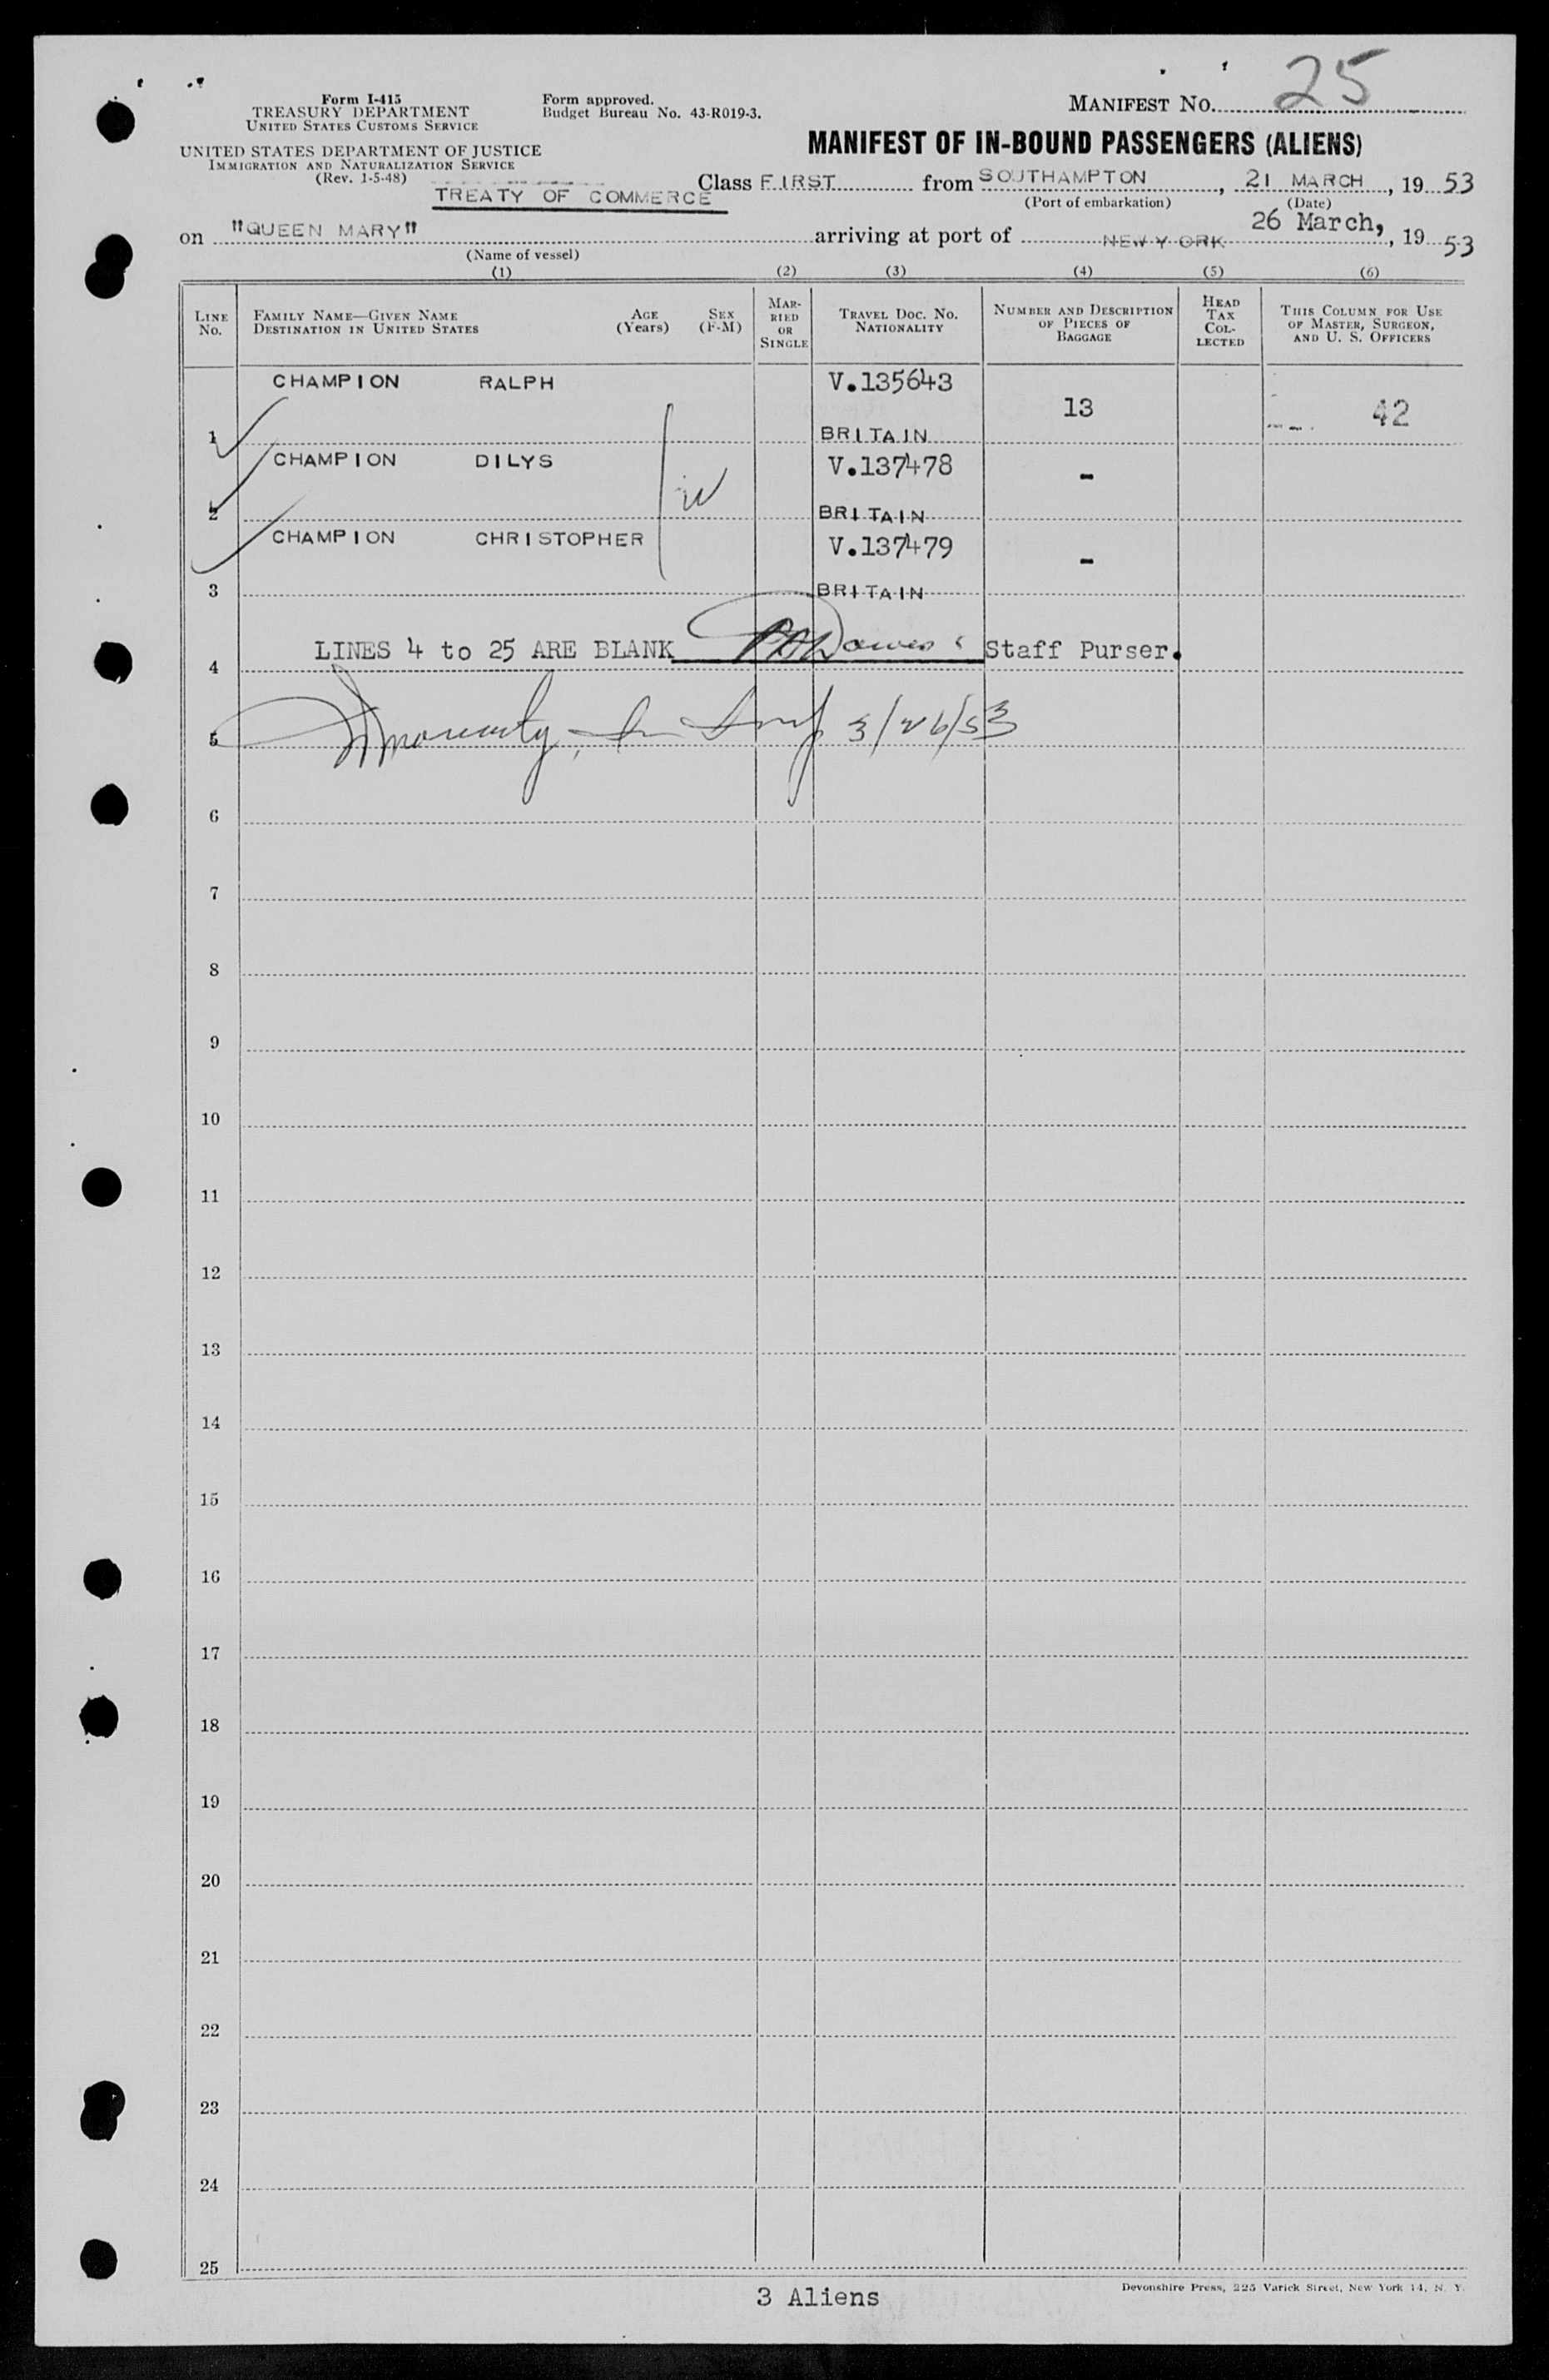 25
Form I-415
TREASURY DEPARTMENT
UNITED STATES CUSTOMS SERVICE
Form approved.
Budget Bureau No. 43-R019-3.
MANIFEST NO.
UNITED STATES DEPARTMENT OF JUSTICE
IMMIGRATION AND NATURALIZATION SERVICE
(Rev. 1-5-48)
MANIFEST OF IN-BOUND PASSENGERS (ALIENS)
TREATY OF COMMERCE
Class FIRST from SOUTHAMPTON, 21 MARCH, 19 53
(Port of embarkation) (Date)
on "QUEEN MARY" arriving at port of NEW YORK 26 March, 19 53
(Name of vessel)
(1) (2) (3) (4) (5) (6)
LINE No.
FAMILY NAME—GIVEN NAME
DESTINATION IN UNITED STATES
AGE (Years)
SEX (F-M)
MARRIED OR SINGLE
TRAVEL DOC. NO.
NATIONALITY
NUMBER AND DESCRIPTION OF PIECES OF BAGGAGE
HEAD TAX COLLECTED
THIS COLUMN FOR USE OF MASTER, SURGEON, AND U. S. OFFICERS
CHAMPION RALPH V.135643
13 42
1 BRITAIN
CHAMPION DILYS V.137478 -
2 BRITAIN
CHAMPION CHRISTOPHER V.137479 -
3 BRITAIN
LINES 4 to 25 ARE BLANK Staff Purser.
4
5 3/26/53
6
7
8
9
10
11
12
13
14
15
16
17
18
19
20
21
22
23
24
25
3 Aliens
Devonshire Press, 225 Varick Street, New York 14, N. Y.